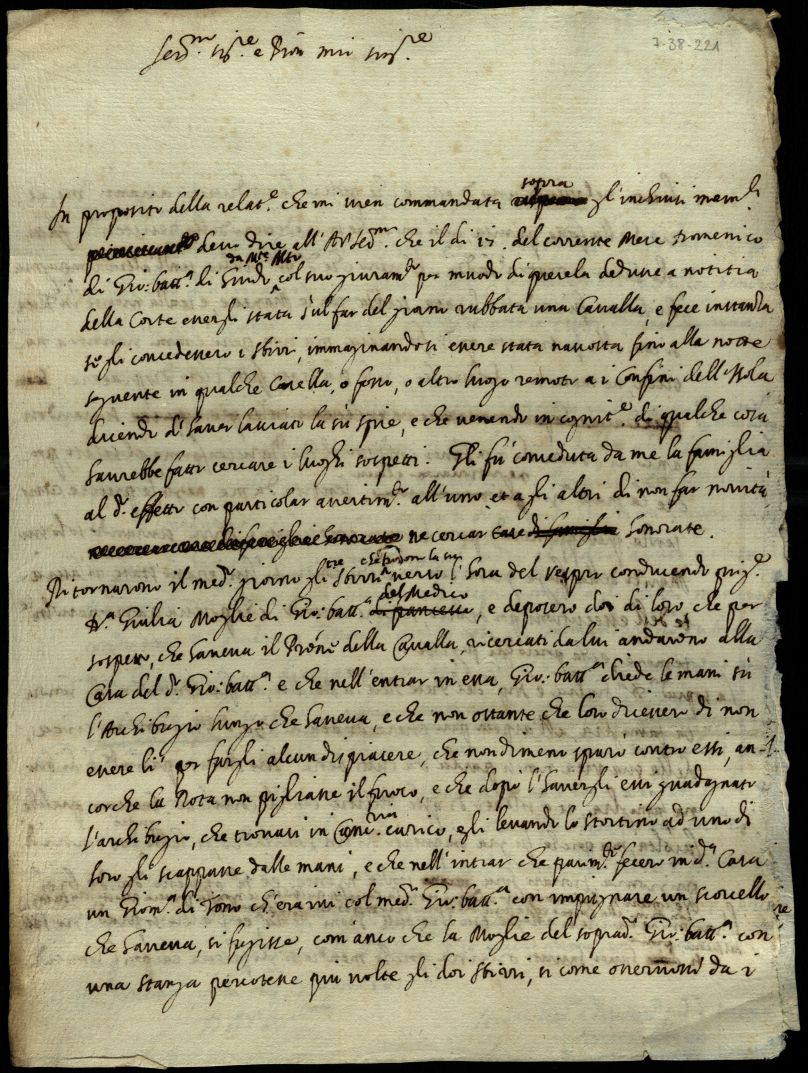 7-38-221
Ser.mo Sig.re e Pron mio Sig.re
In proposito della relat.e che mi vien commandata sopra gl'inclusi mem.li
devo dire all'A.V. Ser.ma che il di 17. del corrente Mese Domenico
di Gio: batt.a di col suo giuram.to per muodo di querela dedusse a notitia
della Corte essergli stata sul far del giorno rubbata una Cavalla, e fece instanza
se gli concedessero i sbirri, immaginandosi essere stata nascosta sino alla notte
seguente in qualche Casella, o fosso, o altro luogo remoto a i Confini dell'
dicendo d'haver lasciato le sue spie, e che venendo in cognit.e di qualche cosa
havrebbe fatto cercare i luoghi sospetti. Gli fù conceduta da me la famiglia
al d.o effetto con particolar avertim.to all'uno et a gli altri di non far novità
ne cercar case honorate.
Ritornarono il med.o giorno gli sbirri verso l'hora del vespro conducendo prig.e
Giulia Moglie di Gio: batt.a del Medico, e deposero doi di loro, che per
sospetto, che haveva il Prone della Cavalla, ricercati da lui andarono alla
Casa del d.o Gio: batt.a e che nell'entrar in essa, Gio: batt.a diede le mani sù
l'Archibugio lungo che haveva, e che non ostante che loro dicessero di non
essere lì per fargli alcun dispiacere, che nondimeno sparò contro essi, an-
corche la Rota non pigliasse il fuoco, e che dopò l'havergli essi guadagnato
l'archibugio, che trovasi in carico, egli levando lo stortino ad uno di
loro gli scappasse dalle mani, e che nell'intrar che parim.te fecero in d.a Casa
un Giom.o di Tono ch'era ivi col med.o Gio: batt.a con impugnare un
che haveva, si fugisse, com'anco che la Moglie del soprad.o Gio: batt.a con
una stanga percotesse più volte gli doi sbirri, si come da i